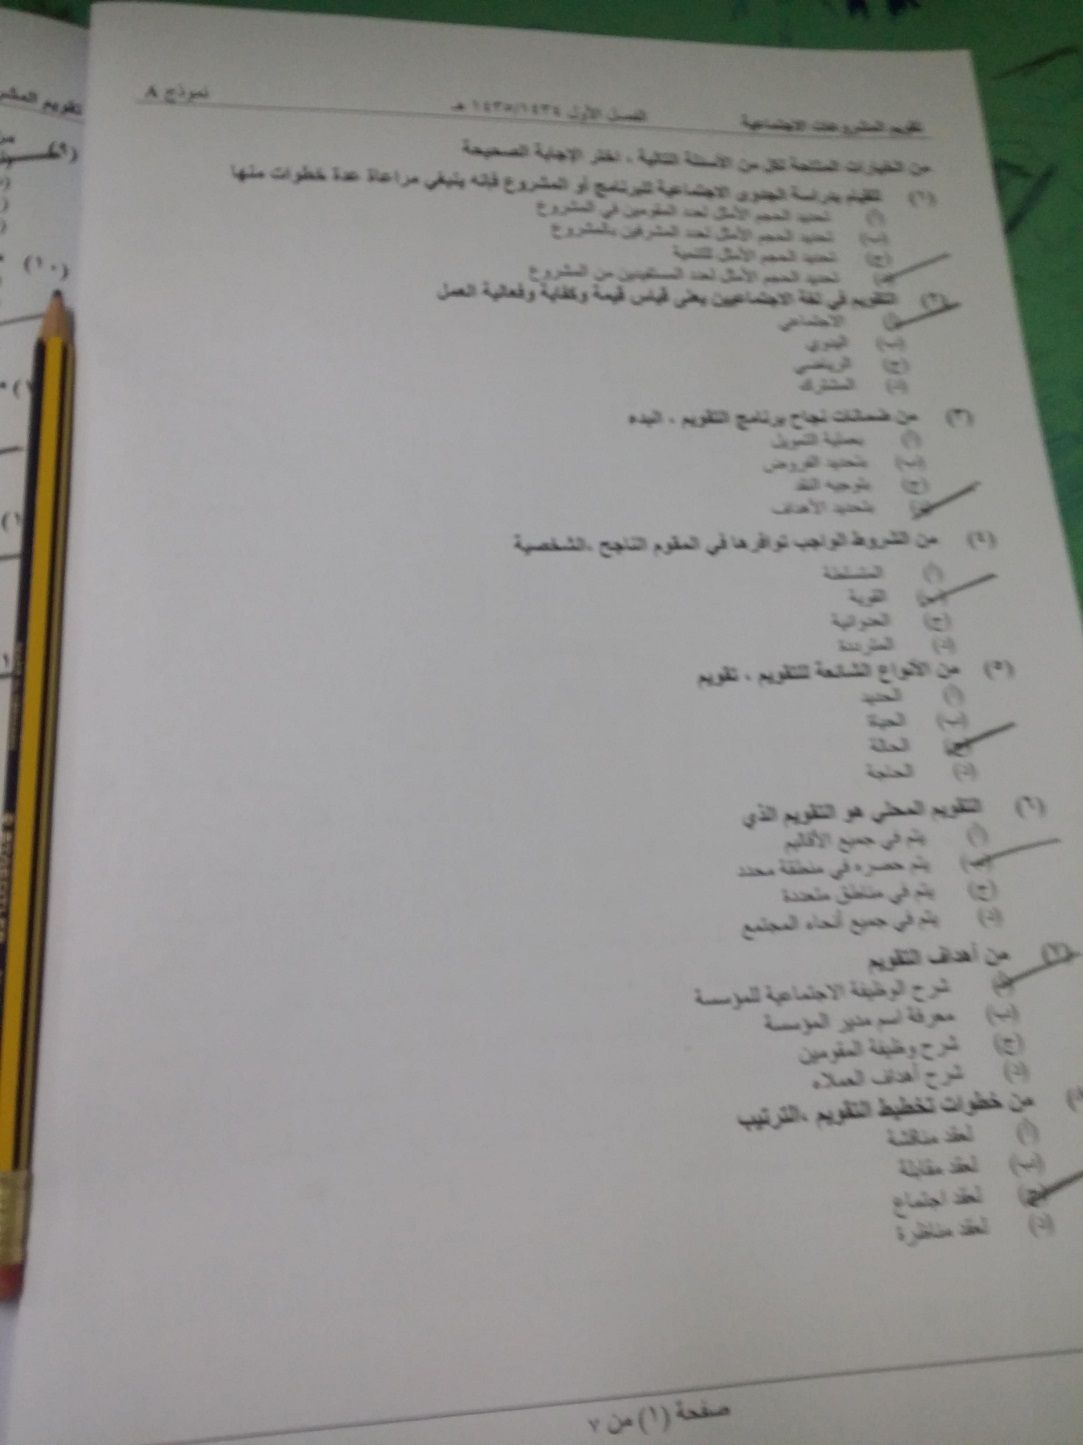 تقويم المشروعات الاجتماعية الفصل الأول ١٤٣٥/١٤٣٤ هـ نموذج A
من الخيارات المتاحة لكل من الأسئلة التالية ، اختر الإجابة الصحيحة
(١) للقيام بدراسة الجدوى الاجتماعية للبرنامج أو المشروع فإنه ينبغي مراعاة عدة خطوات منها
(أ) تحديد الحجم الأمثل لعدد المقومين في المشروع
(ب) تحديد الحجم الأمثل لعدد المشرفين بالمشروع
(ج) تحديد الحجم الأمثل للتنمية
(د) تحديد الحجم الأمثل لعدد المستفيدين من المشروع
(٢) التقويم في لغة الاجتماعيين يعني قياس قيمة وكفاية وفعالية العمل
(أ) الاجتماعي
(ب) اليدوي
(ج) الرياضي
(د) المشترك
(٣) من ضمانات نجاح برنامج التقويم ، البدء
(أ) بعملية التمويل
(ب) بتحديد الفروض
(ج) بتوجيه النقد
(د) بتحديد الأهداف
(٤) من الشروط الواجب توافرها في المقوم الناجح ،الشخصية
(أ) المتسلطة
(ب) القوية
(ج) العدوانية
(د) المترددة
(٥) من الأنواع الشائعة للتقويم ، تقويم
(أ) الحديد
(ب) الحياة
(ج) الحالة
(د) الحاجة
(٦) التقويم المحلي هو التقويم الذي
(أ) يتم في جميع الأقاليم
(ب) يتم حصره في منطقة محدد
(ج) يتم في مناطق متعددة
(د) يتم في جميع أنحاء المجتمع
(٧) من أهداف التقويم
(أ) شرح الوظيفة الاجتماعية للمؤسسة
(ب) معرفة اسم مدير المؤسسة
(ج) شرح وظيفة المقومين
(د) شرح أهداف العملاء
من خطوات تخطيط التقويم ،الترتيب
(أ) لعقد مناقشة
(ب) لعقد مقابلة
(ج) لعقد اجتماع
(د) لعقد مناظرة
صفحة (١) من ٧
(٩)
(١٠)